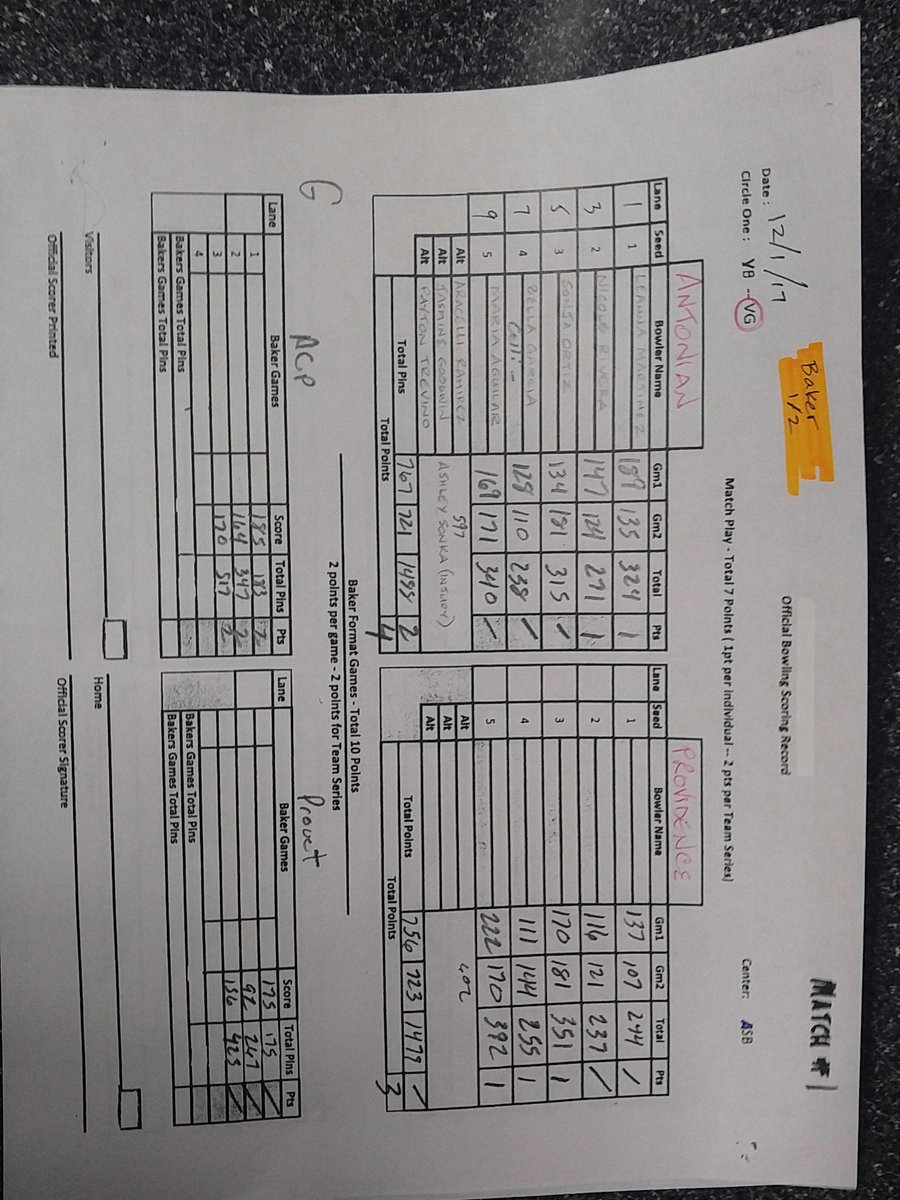 MATCH #1
Baker
1/2
Official Bowling Scoring Record
Date : 12/1/17
Circle One : VB - VG
Match Play - Total 7 Points ( 1pt per individual -- 2 pts per Team Series)
Center: ASB
ANTONIAN
Lane Seed Bowler Name Gm1 Gm2 Total Pts
1 1 LEANNA MARTINEZ 189 135 324 1
3 2 NICOLE RIVERA 147 124 271 1
5 3 SONJA ORTIZ 134 181 315 /
7 4 BELLA GARCIA 128 110 238 /
9 5 MARIA AGUILAR 169 171 340 /
Alt ARACELLI RAMIREZ 597
Alt JASMINE GOODWIN ASHLEY SONKA (INJURY)
Alt PAYTON TREVINO
Total Pins 767 721 1488 2
Total Points 4
PROVIDENCE
Lane Seed Bowler Name Gm1 Gm2 Total Pts
1 137 107 244 /
2 116 121 237 /
3 170 181 351 1
4 111 144 255 1
5 222 170 392 1
Alt 402
Alt
Alt
Total Points 756 723 1479 /
Total Points 3
Baker Format Games - Total 10 Points
2 points per game - 2 points for Team Series
G ACP
Lane Baker Games Score Total Pins Pts
1 185 2
2 164 347 2
3 170 517 2
4
Bakers Games Total Pins
Bakers Games Total Pins
Lane Baker Games Score Total Pins Pts
175 175 /
92 267 /
156 423 /
Bakers Games Total Pins
Bakers Games Total Pins
Visitors
Home
Official Scorer Printed
Official Scorer Signature